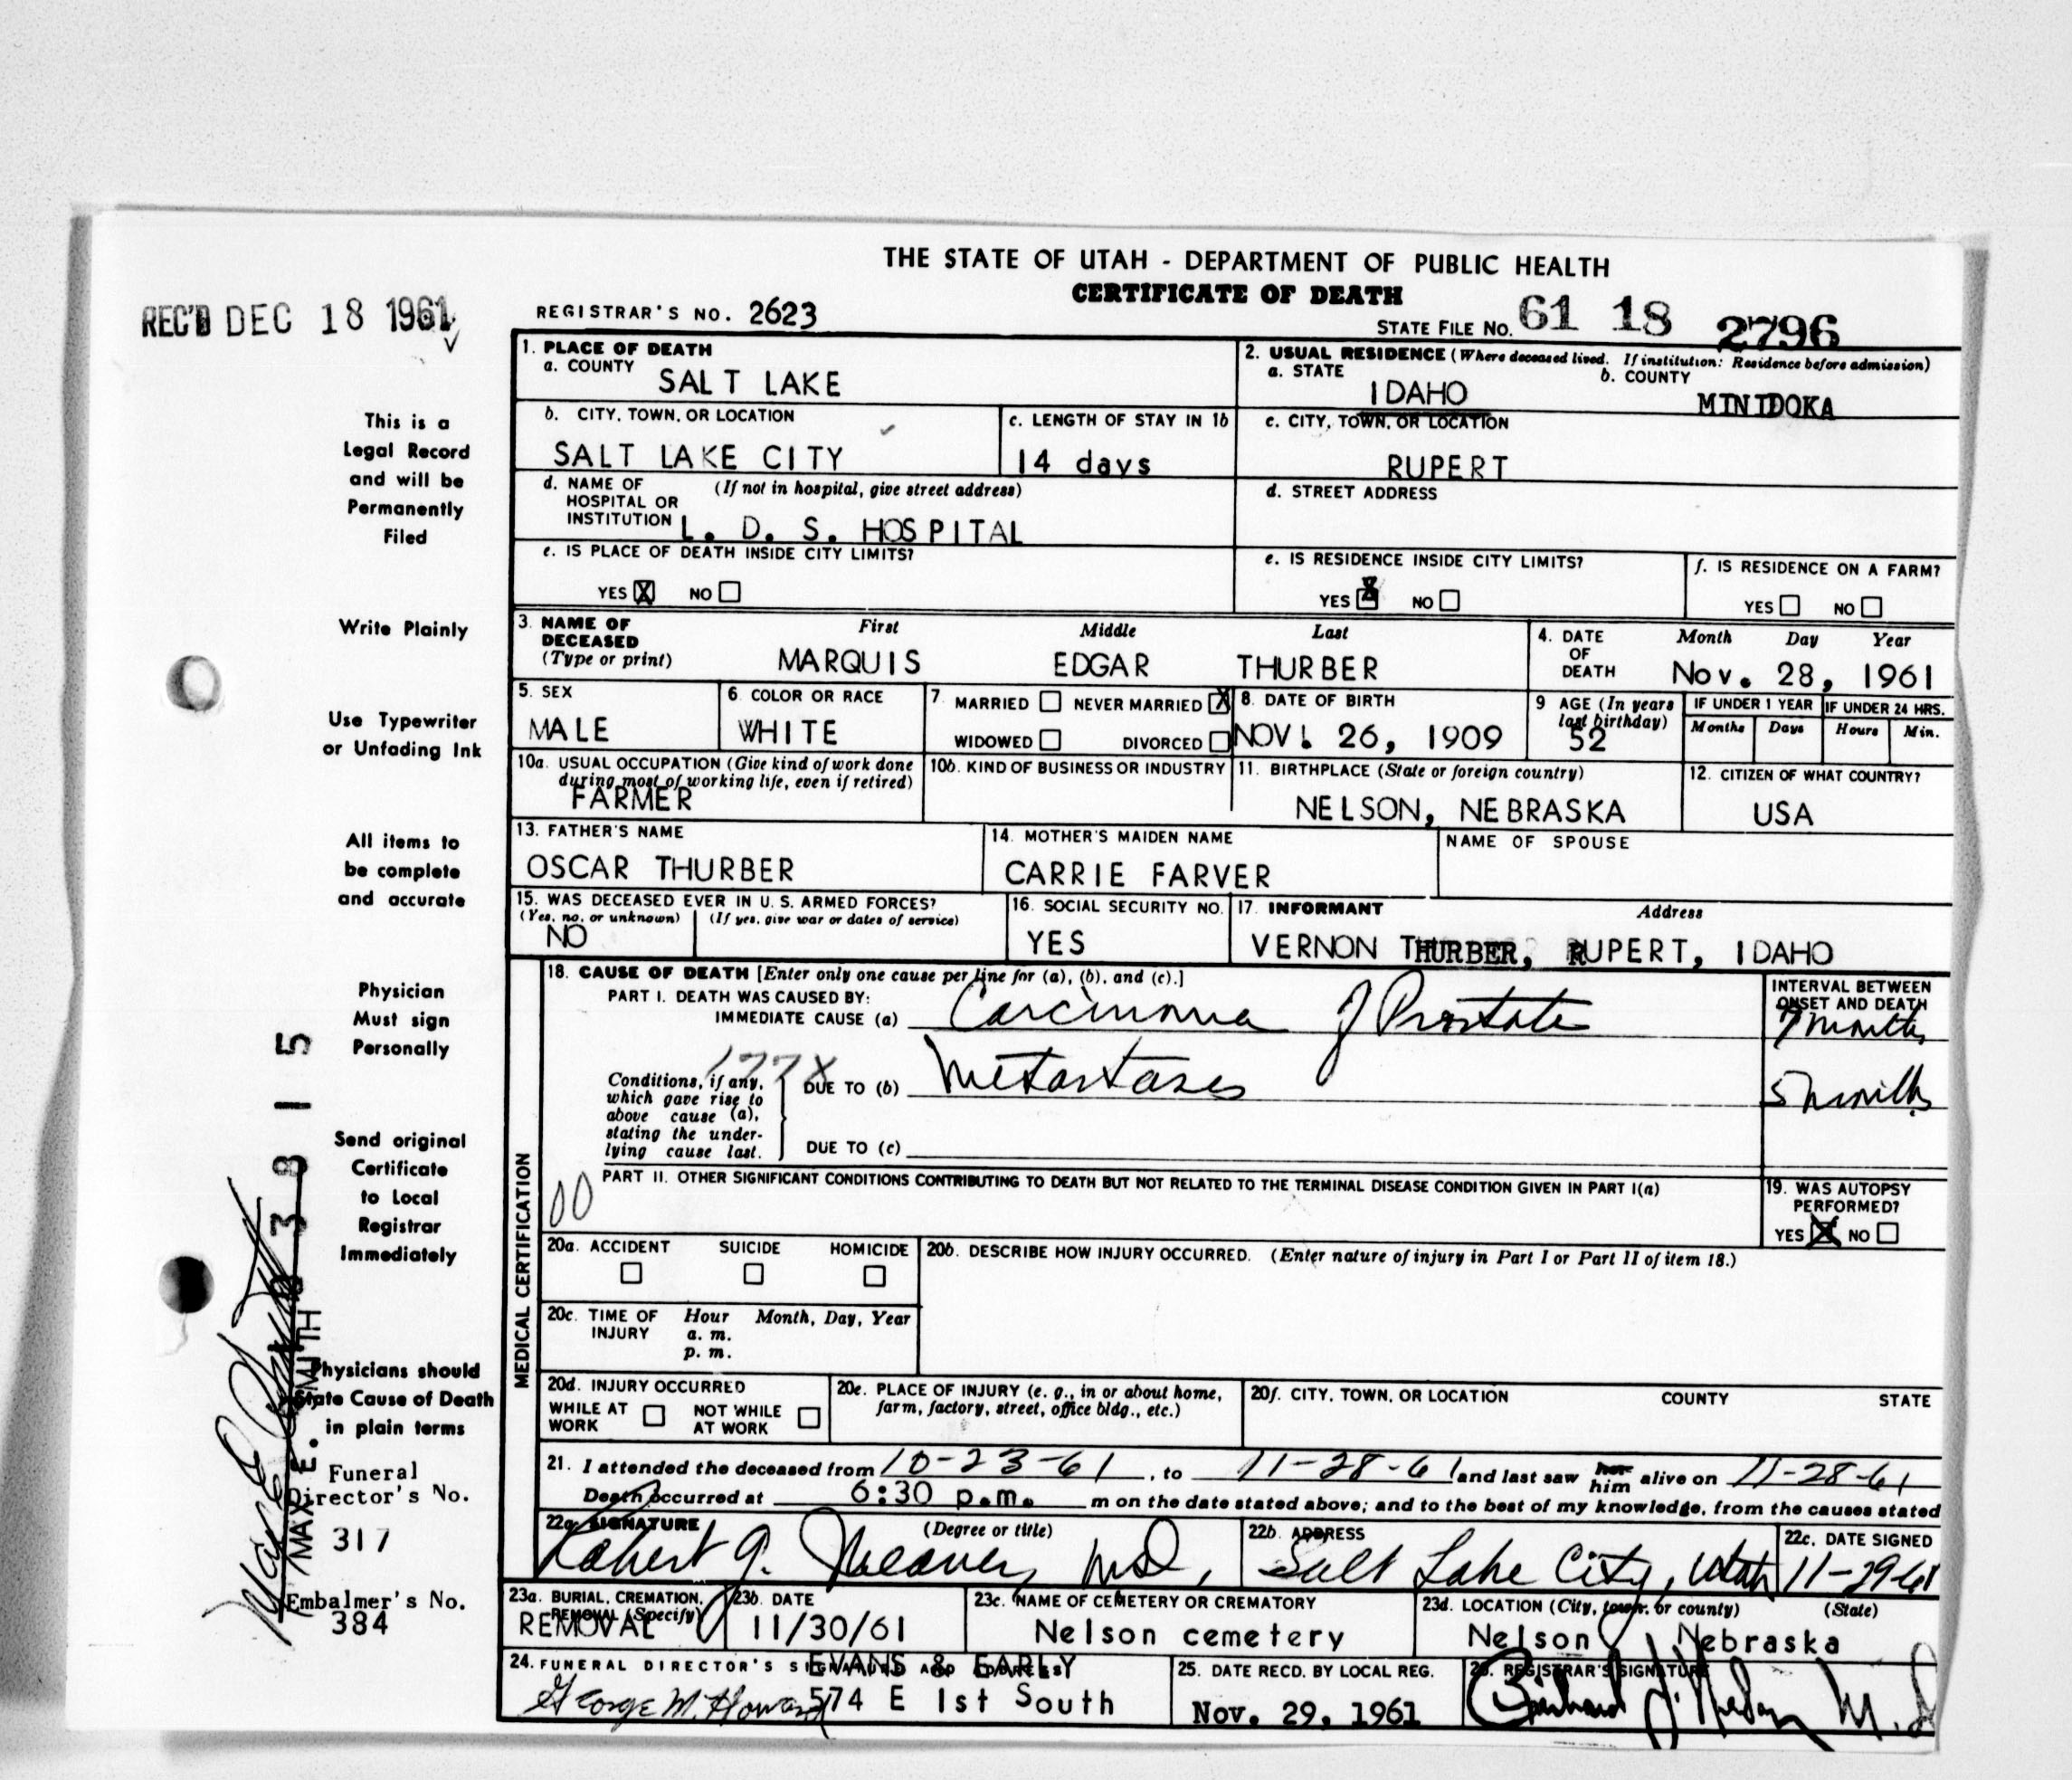 THE STATE OF UTAH - DEPARTMENT OF PUBLIC HEALTH
CERTIFICATE OF DEATH
REC'D DEC 18 1961
REGISTRAR'S NO. 2623
STATE FILE NO. 61 18 2796
1. PLACE OF DEATH
a. COUNTY SALT LAKE
2. USUAL RESIDENCE (Where deceased lived. If institution: Residence before admission)
a. STATE IDAHO b. COUNTY MINIDOKA
b. CITY, TOWN, OR LOCATION SALT LAKE CITY
c. LENGTH OF STAY IN 1b 14 days
c. CITY, TOWN, OR LOCATION RUPERT
d. NAME OF HOSPITAL OR INSTITUTION (If not in hospital, give street address) L. D. S. HOSPITAL
d. STREET ADDRESS
e. IS PLACE OF DEATH INSIDE CITY LIMITS?
YES X NO
e. IS RESIDENCE INSIDE CITY LIMITS?
YES X NO
f. IS RESIDENCE ON A FARM?
YES NO
3. NAME OF DECEASED (Type or print)
First Middle Last
MARQUIS EDGAR THURBER
4. DATE OF DEATH Month Day Year
Nov. 28, 1961
5. SEX MALE
6. COLOR OR RACE WHITE
7. MARRIED NEVER MARRIED X
WIDOWED DIVORCED
8. DATE OF BIRTH NOV. 26, 1909
9 AGE (In years last birthday) 52
IF UNDER 1 YEAR IF UNDER 24 HRS.
Months Days Hours Min.
10a. USUAL OCCUPATION (Give kind of work done during most of working life, even if retired)
FARMER
10b. KIND OF BUSINESS OR INDUSTRY
11. BIRTHPLACE (State or foreign country)
NELSON, NEBRASKA
12. CITIZEN OF WHAT COUNTRY?
USA
13. FATHER'S NAME
OSCAR THURBER
14. MOTHER'S MAIDEN NAME
CARRIE FARVER
NAME OF SPOUSE
15. WAS DECEASED EVER IN U. S. ARMED FORCES?
(Yes, no, or unknown) (If yes, give war or dates of service)
NO
16. SOCIAL SECURITY NO.
YES
17. INFORMANT Address
VERNON THURBER, RUPERT, IDAHO
MEDICAL CERTIFICATION
18. CAUSE OF DEATH [Enter only one cause per line for (a), (b), and (c).]
PART I. DEATH WAS CAUSED BY:
IMMEDIATE CAUSE (a) Carcinoma of Prostate
INTERVAL BETWEEN ONSET AND DEATH
months
177X
Conditions, if any, which gave rise to above cause (a), stating the underlying cause last.
DUE TO (b) Metastases
5 months
DUE TO (c)
PART II. OTHER SIGNIFICANT CONDITIONS CONTRIBUTING TO DEATH BUT NOT RELATED TO THE TERMINAL DISEASE CONDITION GIVEN IN PART I(a)
00
19. WAS AUTOPSY PERFORMED?
YES X NO
20a. ACCIDENT SUICIDE HOMICIDE
20b. DESCRIBE HOW INJURY OCCURRED. (Enter nature of injury in Part I or Part II of item 18.)
20c. TIME OF INJURY Hour Month, Day, Year
a. m.
p. m.
20d. INJURY OCCURRED
WHILE AT WORK NOT WHILE AT WORK
20e. PLACE OF INJURY (e. g., in or about home, farm, factory, street, office bldg., etc.)
20f. CITY, TOWN, OR LOCATION COUNTY STATE
21. I attended the deceased from 10-23-61, to 11-28-61 and last saw her him alive on 11-28-61
Death occurred at 6:30 p.m. m on the date stated above; and to the best of my knowledge, from the causes stated
22a. SIGNATURE (Degree or title)
Robert G. Weaver, MD,
22b. ADDRESS
Salt Lake City, Utah
22c. DATE SIGNED
11-29-61
23a. BURIAL, CREMATION, REMOVAL (Specify)
REMOVAL
23b. DATE
11/30/61
23c. NAME OF CEMETERY OR CREMATORY
Nelson cemetery
23d. LOCATION (City, town, or county) (State)
Nelson Nebraska
24. FUNERAL DIRECTOR'S SIGNATURE AND ADDRESS
EVANS & EARLY
George M. Howard 574 E 1st South
25. DATE RECD. BY LOCAL REG.
Nov. 29, 1961
26. REGISTRAR'S SIGNATURE
M.D.
This is a
Legal Record
and will be
Permanently
Filed
Write Plainly
Use Typewriter
or Unfading Ink
All items to
be complete
and accurate
Physician
Must sign
Personally
Send original
Certificate
to Local
Registrar
Immediately
Physicians should
State Cause of Death
in plain terms
Funeral
Director's No.
317
Embalmer's No.
384
MAX E. SMITH